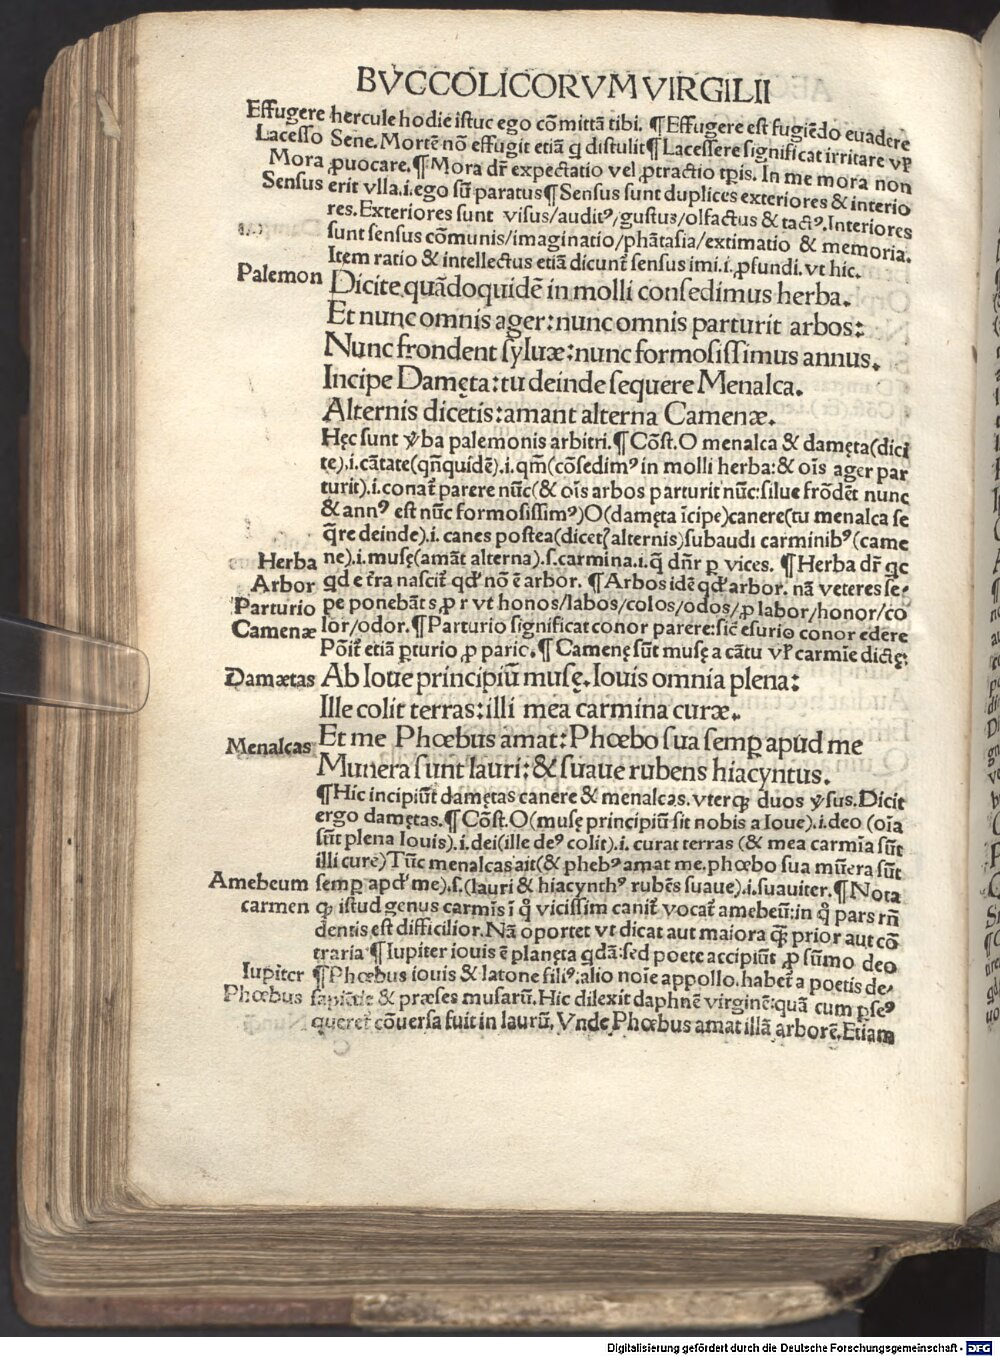 BVCCOLICORVM VIRGILII
Effugere hercule hodie istuc ego cõmittã tibi. ¶Effugere est fugiẽdo euadere
Lacesso Sene. Mortẽ nõ effugit etiã q distulit¶ Lacessere significat irritare vꝉ
Mora ꝓuocare.¶Mora dr̃ expectatio vel ꝓtractio tꝑis. In me mora non
Sensus erit vlla.i.ego sũ paratus¶Sensus sunt duplices exteriores & interio
res.Exteriores sunt visus/auditꝰ/gustus/olfactus & tactꝰ.Interiores
sunt sensus cõmunis/imaginatio/phãtasia/extimatio & memoria.
Item ratio & intellectus etiã dicunt̃ sensus imi.i.ꝓfundi. vt hic.
Palemon Dicite quãdoquidẽ in molli consedimus herba.
Et nunc omnis ager:nunc omnis parturit arbos:
Nunc frondent syluæ:nunc formosissimus annus.
Incipe Damęta:tu deinde sequere Menalca.
Alternis dicetis:amant alterna Camenæ.
Hęc sunt v̾ba palemonis arbitri.¶Cõst.O menalca & damęta(dici
te).i.cãtate(qñquidẽ).i.qm̃(cõsedimꝰ in molli herba:& oĩs ager par
turit).i.conat̃ parere nũc(& oĩs arbos parturit nũc:silue frõdẽt nunc
& annꝰ est nũc formosissimꝰ)O(damęta ĩcipe)canere(tu menalca se
q̃re deinde).i. canes postea(dicet alternis)subaudi carminibꝰ(came
Herba ne).i.musę(amãt alterna).s.carmina.i.q̃ dñr ꝑ vices. ¶Herba dr̃ qc
Arbor qd e ẽra nascit̃ qđ nõ ẽ arbor. ¶Arbos idẽ qđ arbor. nã veteres se
Parturio pe ponebãt s ꝓ r vt honos/labos/colos/odos/ꝓ labor/honor/co
Camenæ lor/odor.¶Parturio significat conor parere:sic̃ esurio conor edere
Põit̃ etiã ꝑturio ꝓ pario.¶Camenę sũt musę a cãtu vꝉ carmĩe dictę:
Damætas Ab Ioue principiũ musę.Iouis omnia plena:
Ille colit terras:illi mea carmina curæ.
Menalcas Et me Phœbus amat:Phœbo sua semꝑ apud me
Munera sunt lauri:& suaue rubens hiacyntus.
¶Hic incipiũt damętas canere & menalcas.vterqꝫ duos v̾sus.Dicit
ergo damętas.¶Cõst.O(musę principiũ sit nobis a Ioue).i.deo (oĩa
sũt plena Iouis).i.dei(ille deꝰ colit).i. curat terras (& mea carmĩa sũt
illi curę)Tũc menalcas ait(& phebꝰ amat me.phœbo sua mũera sũt
Amebeum semꝑ apđ me).s.(lauri & hiacynthꝰ rubẽs suaue).i.suauiter.¶Nota
carmen qꝫ istud genus carmĩs ĩ q̊ vicissim canit̃ vocat̃ amebeũ:in q̊ pars rñ
dentis est difficilior.Nã oportet vt dicat aut maiora qꝫ̃ prior aut cõ
traria¶Iupiter iouis ẽ planęta qdã:sed poete accipiũt ꝓ sũmo deo
Iupiter ¶Phœbus iouis & latone filiꝰ:alio noĩe appollo.habet̃ a poetis de
Phœbus sapiẽtie & præses musarũ.Hic dilexit daphnẽ virginẽ:quã cum ꝑseꝰ
queret̃ cõuersa fuit in laurũ.Vnde Phœbus amat illã arborẽ.Etiam
Digitalisierung gefördert durch die Deutsche Forschungsgemeinschaft - DFG